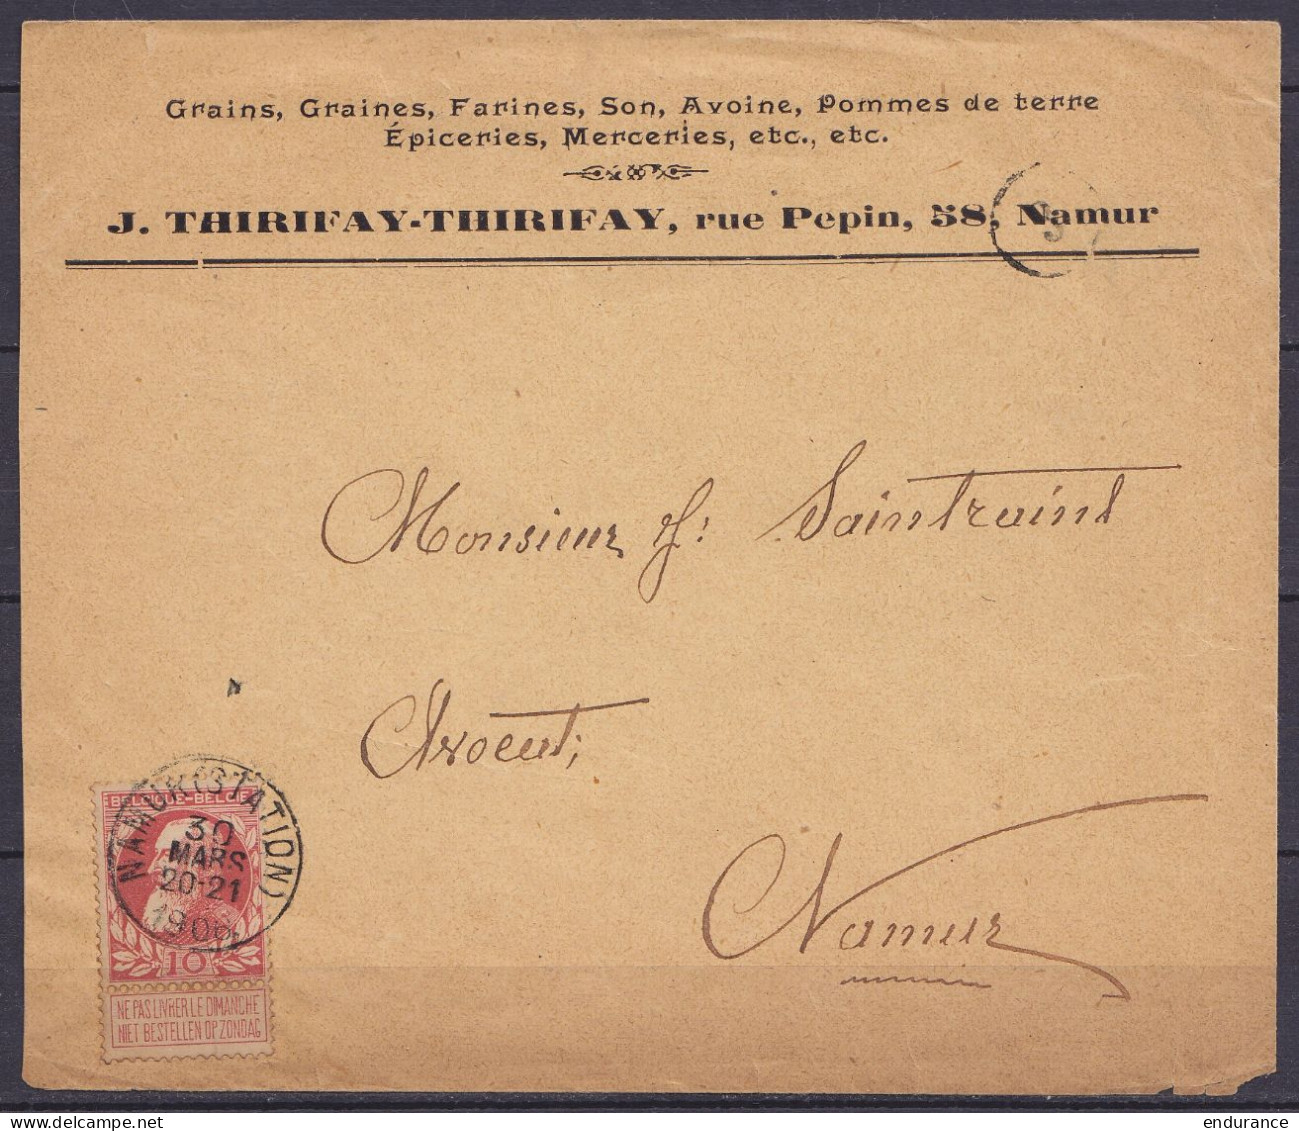 Grains, Graines, Farines, Son, Avoine, Pommes de terre
Épiceries, Merceries, etc., etc.
J. THIRIFAY-THIRIFAY, rue Pepin, 58, Namur
Monsieur J: Saintraint
Avocat,
Namur
BELGIQUE-BELGIE
NAMUR (STATION)
30
MARS
20-21
1906
10
NE PAS LIVRER LE DIMANCHE
NIET BESTELLEN OP ZONDAG
endurance
delcampe.net